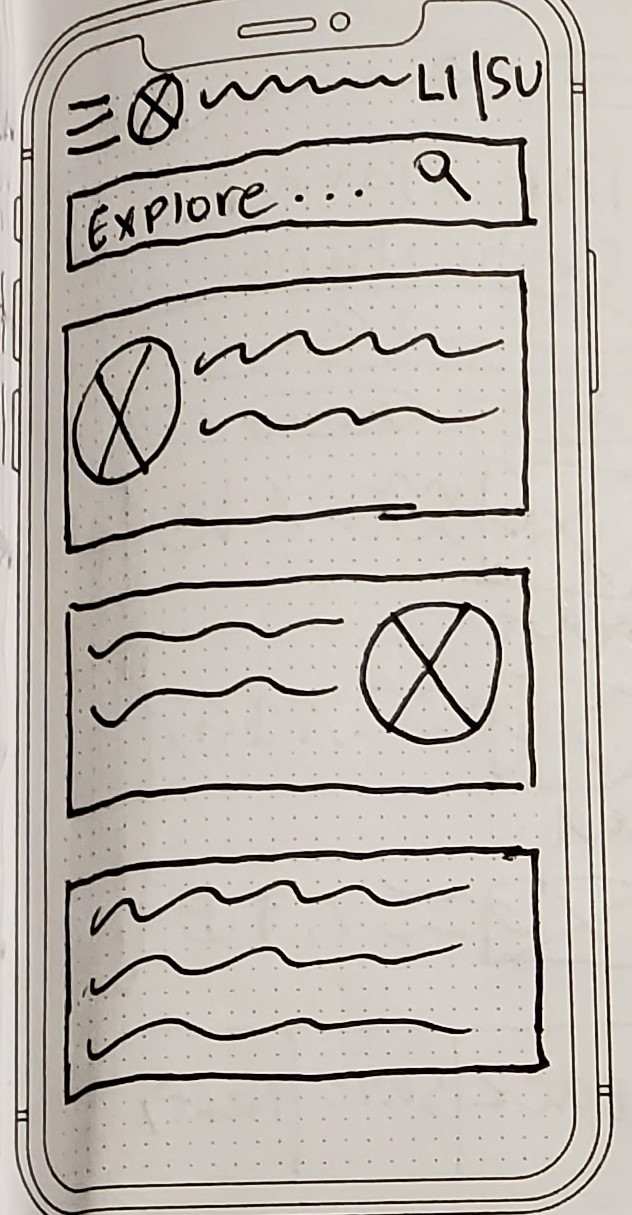 LI | SU
Explore...